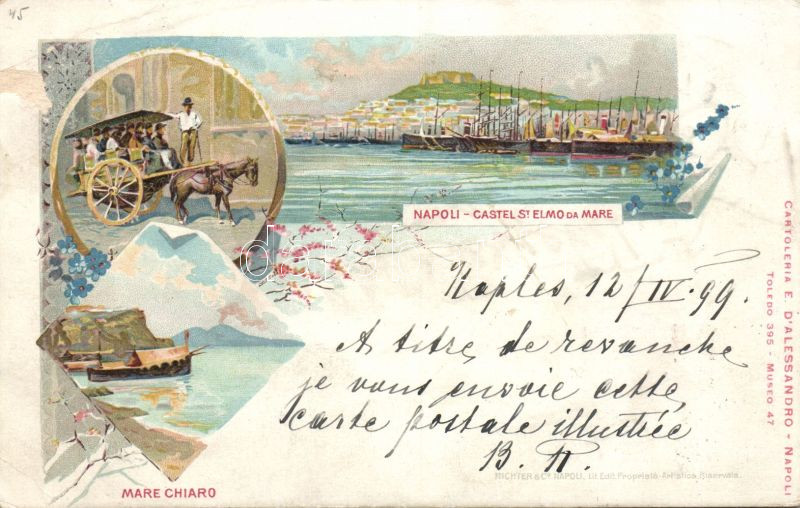 45
NAPOLI - CASTEL ST ELMO DA MARE
Naples, 12/IV. 99.
A titre de revanche
je vous envoie cette
carte postale illustrée
B. R.
RICHTER & Co NAPOLI, Lit. Edit. Proprietà-Artistica Riservata.
MARE CHIARO
CARTOLERIA E. D'ALESSANDRO - NAPOLI
TOLEDO 395 - MUSEO 47